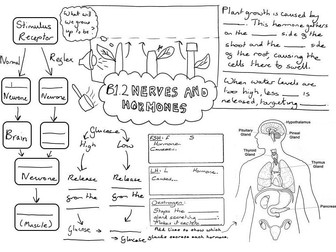 Stimulus
Receptor
Normal
Reflex
Neurone
Neurone
Brain
Neurone
(Muscle)
What will
we grow
up to be?
B1.2 NERVES AND
HORMONES
Plant growth is caused by
____. This hormone gathers
on the ____ side of the
shoot and the ____ side
of the root causing the
cells there to swell.
When water levels are
two high, less ____
released, targeting ____
Glucose
High
Low
Release
Release
from the
from the
Glucose →
→ Glucose
FSH: F S
Hormone
Causes...
LH: L
Hormone.
Causes...
Oestrogen:
Stops the
gland secreting
Makes it secrete
Add lines to show which
glands secrete each hormone.
Hypothalamus
Pituitary
Gland
Pineal
Gland
Thyroid
Gland
Thymus
Gland
Pancreas